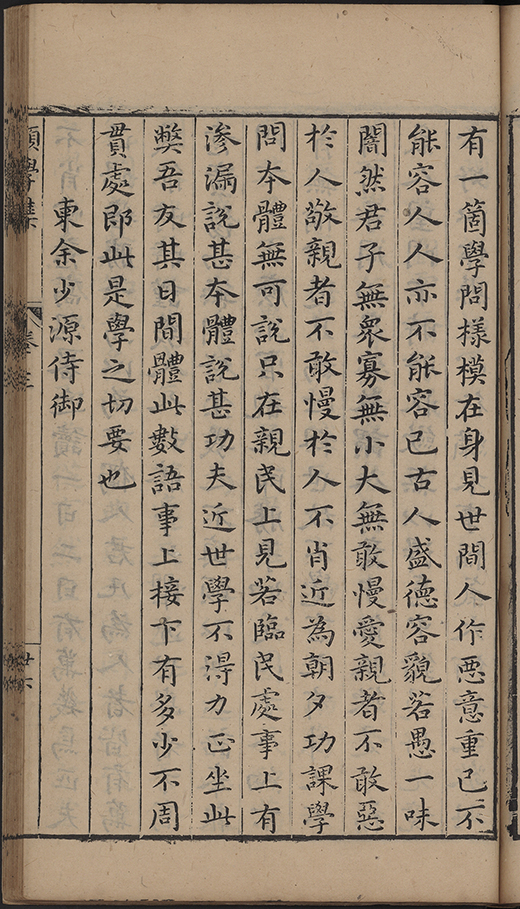 有一箇學問樣模在身見世間人作惡意重已不
能容人人亦不能容已古人盛德容貌若愚一味
闇然君子無眾寡無小大無敢慢愛親者不敢惡
於人敬親者不敢慢於人不肖近為朝夕功課學
問本體無可說只在親民上見若臨民處事上有
滲漏說甚本體說甚功夫近世學不得力正坐此
獘吾友其日間體此數語事上接下有多少不周
貫處即此是學之切要也
柬余少源侍御
願學集
卷三